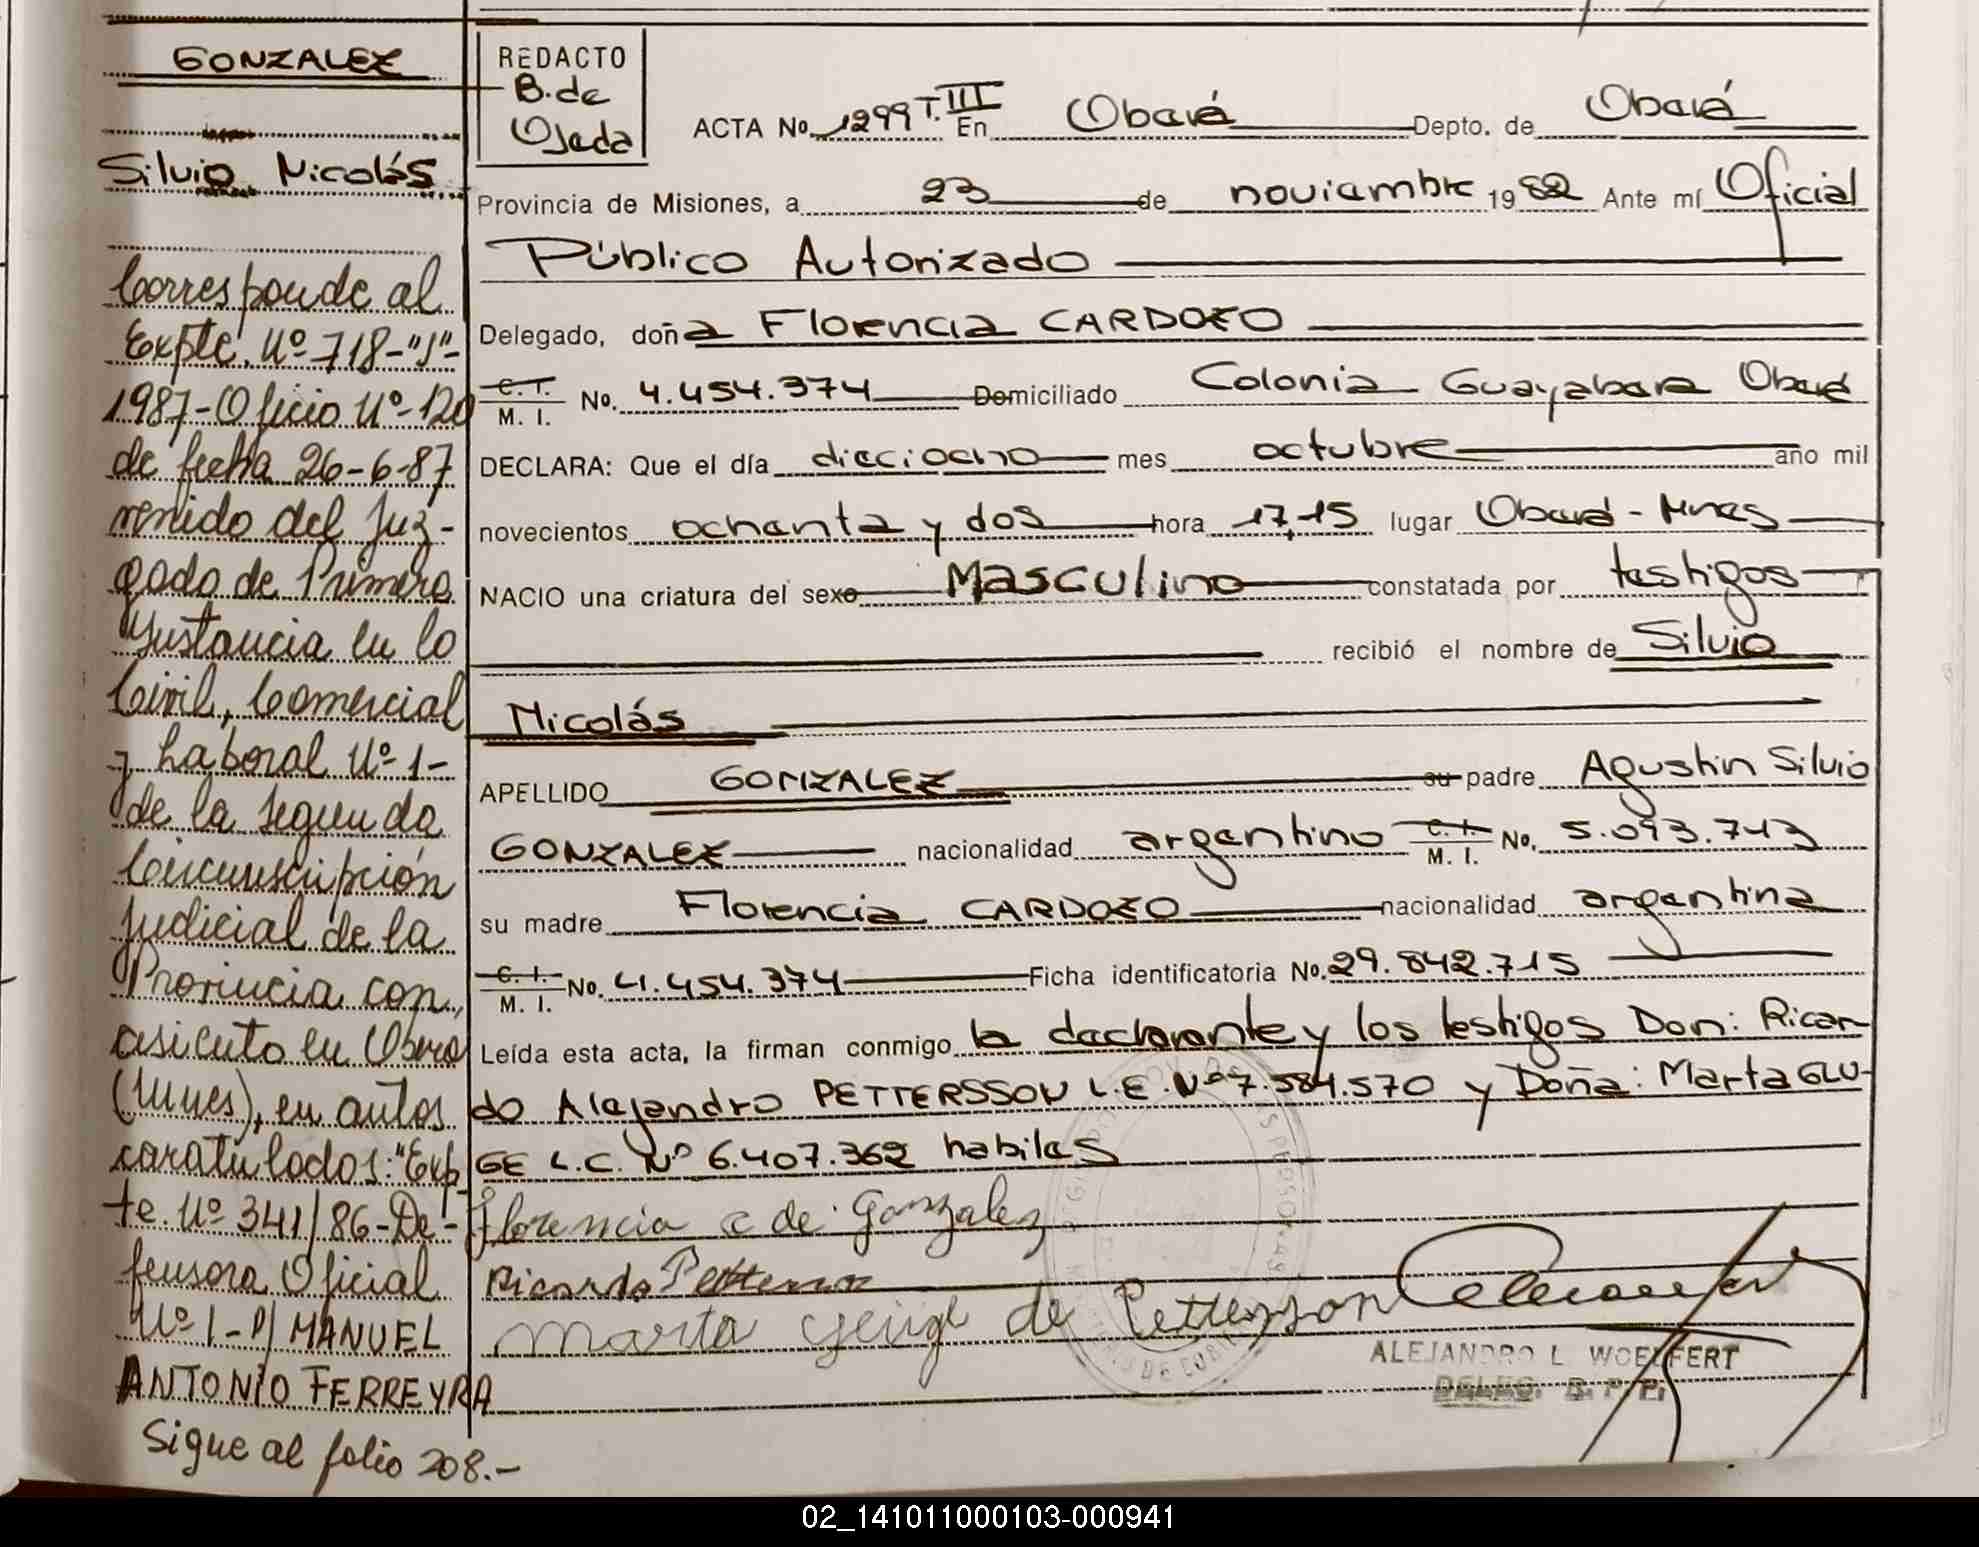 GONZALEZ
Silvio Nicolás
Corresponde al
Expte. Nº 718-"J"-
1987-Oficio Nº-120
de fecha 26-6-87
venido del Juz-
gado de Primera
Instancia en lo
Civil, Comercial
y Laboral Nº 1-
de la Segunda
Circunscripción
Judicial de la
Provincia con
asiento en Oberá
(Mnes), en autos
caratulados: "Exp-
te. Nº 341/86-De-
fensora Oficial
Nº 1-P/ MANUEL
ANTONIO FERREYRA
Sigue al folio 208.-
REDACTO
B. de
Ojeda
ACTA No. 1299 T. III En Oberá Depto. de Oberá
Provincia de Misiones, a 23 de noviembre 1982 Ante mí Oficial
Público Autorizado
Delegado, doña Florencia CARDOZO
C. I. M. I. No. 4.454.374 Domiciliado Colonia Guayabera Oberá
DECLARA: Que el día dieciocho mes octubre año mil
novecientos ochenta y dos hora 17,15 lugar Oberá - Mnes
NACIO una criatura del sexo Masculino constatada por testigos
recibió el nombre de Silvio
Nicolás
APELLIDO GONZALEZ su padre Agustin Silvio
GONZALEZ nacionalidad argentino C. I. M. I. No. 5.093.743
su madre Florencia CARDOZO nacionalidad argentina
C. I. M. I. No. 4.454.374 Ficha identificatoria No. 29.842.715
Leída esta acta, la firman conmigo la declarante y los testigos Don: Ricar-
do Alejandro PETTERSSON L.E. Nº 7.584.570 y Doña: Marta GLU-
GE L.C. Nº 6.407.362 habiles
Florencia C de Gonzalez
Ricardo Pettersson
Marta de Pettersson
ALEJANDRO L. WOELFERT
DELEG. R. P. P.
02_141011000103-000941